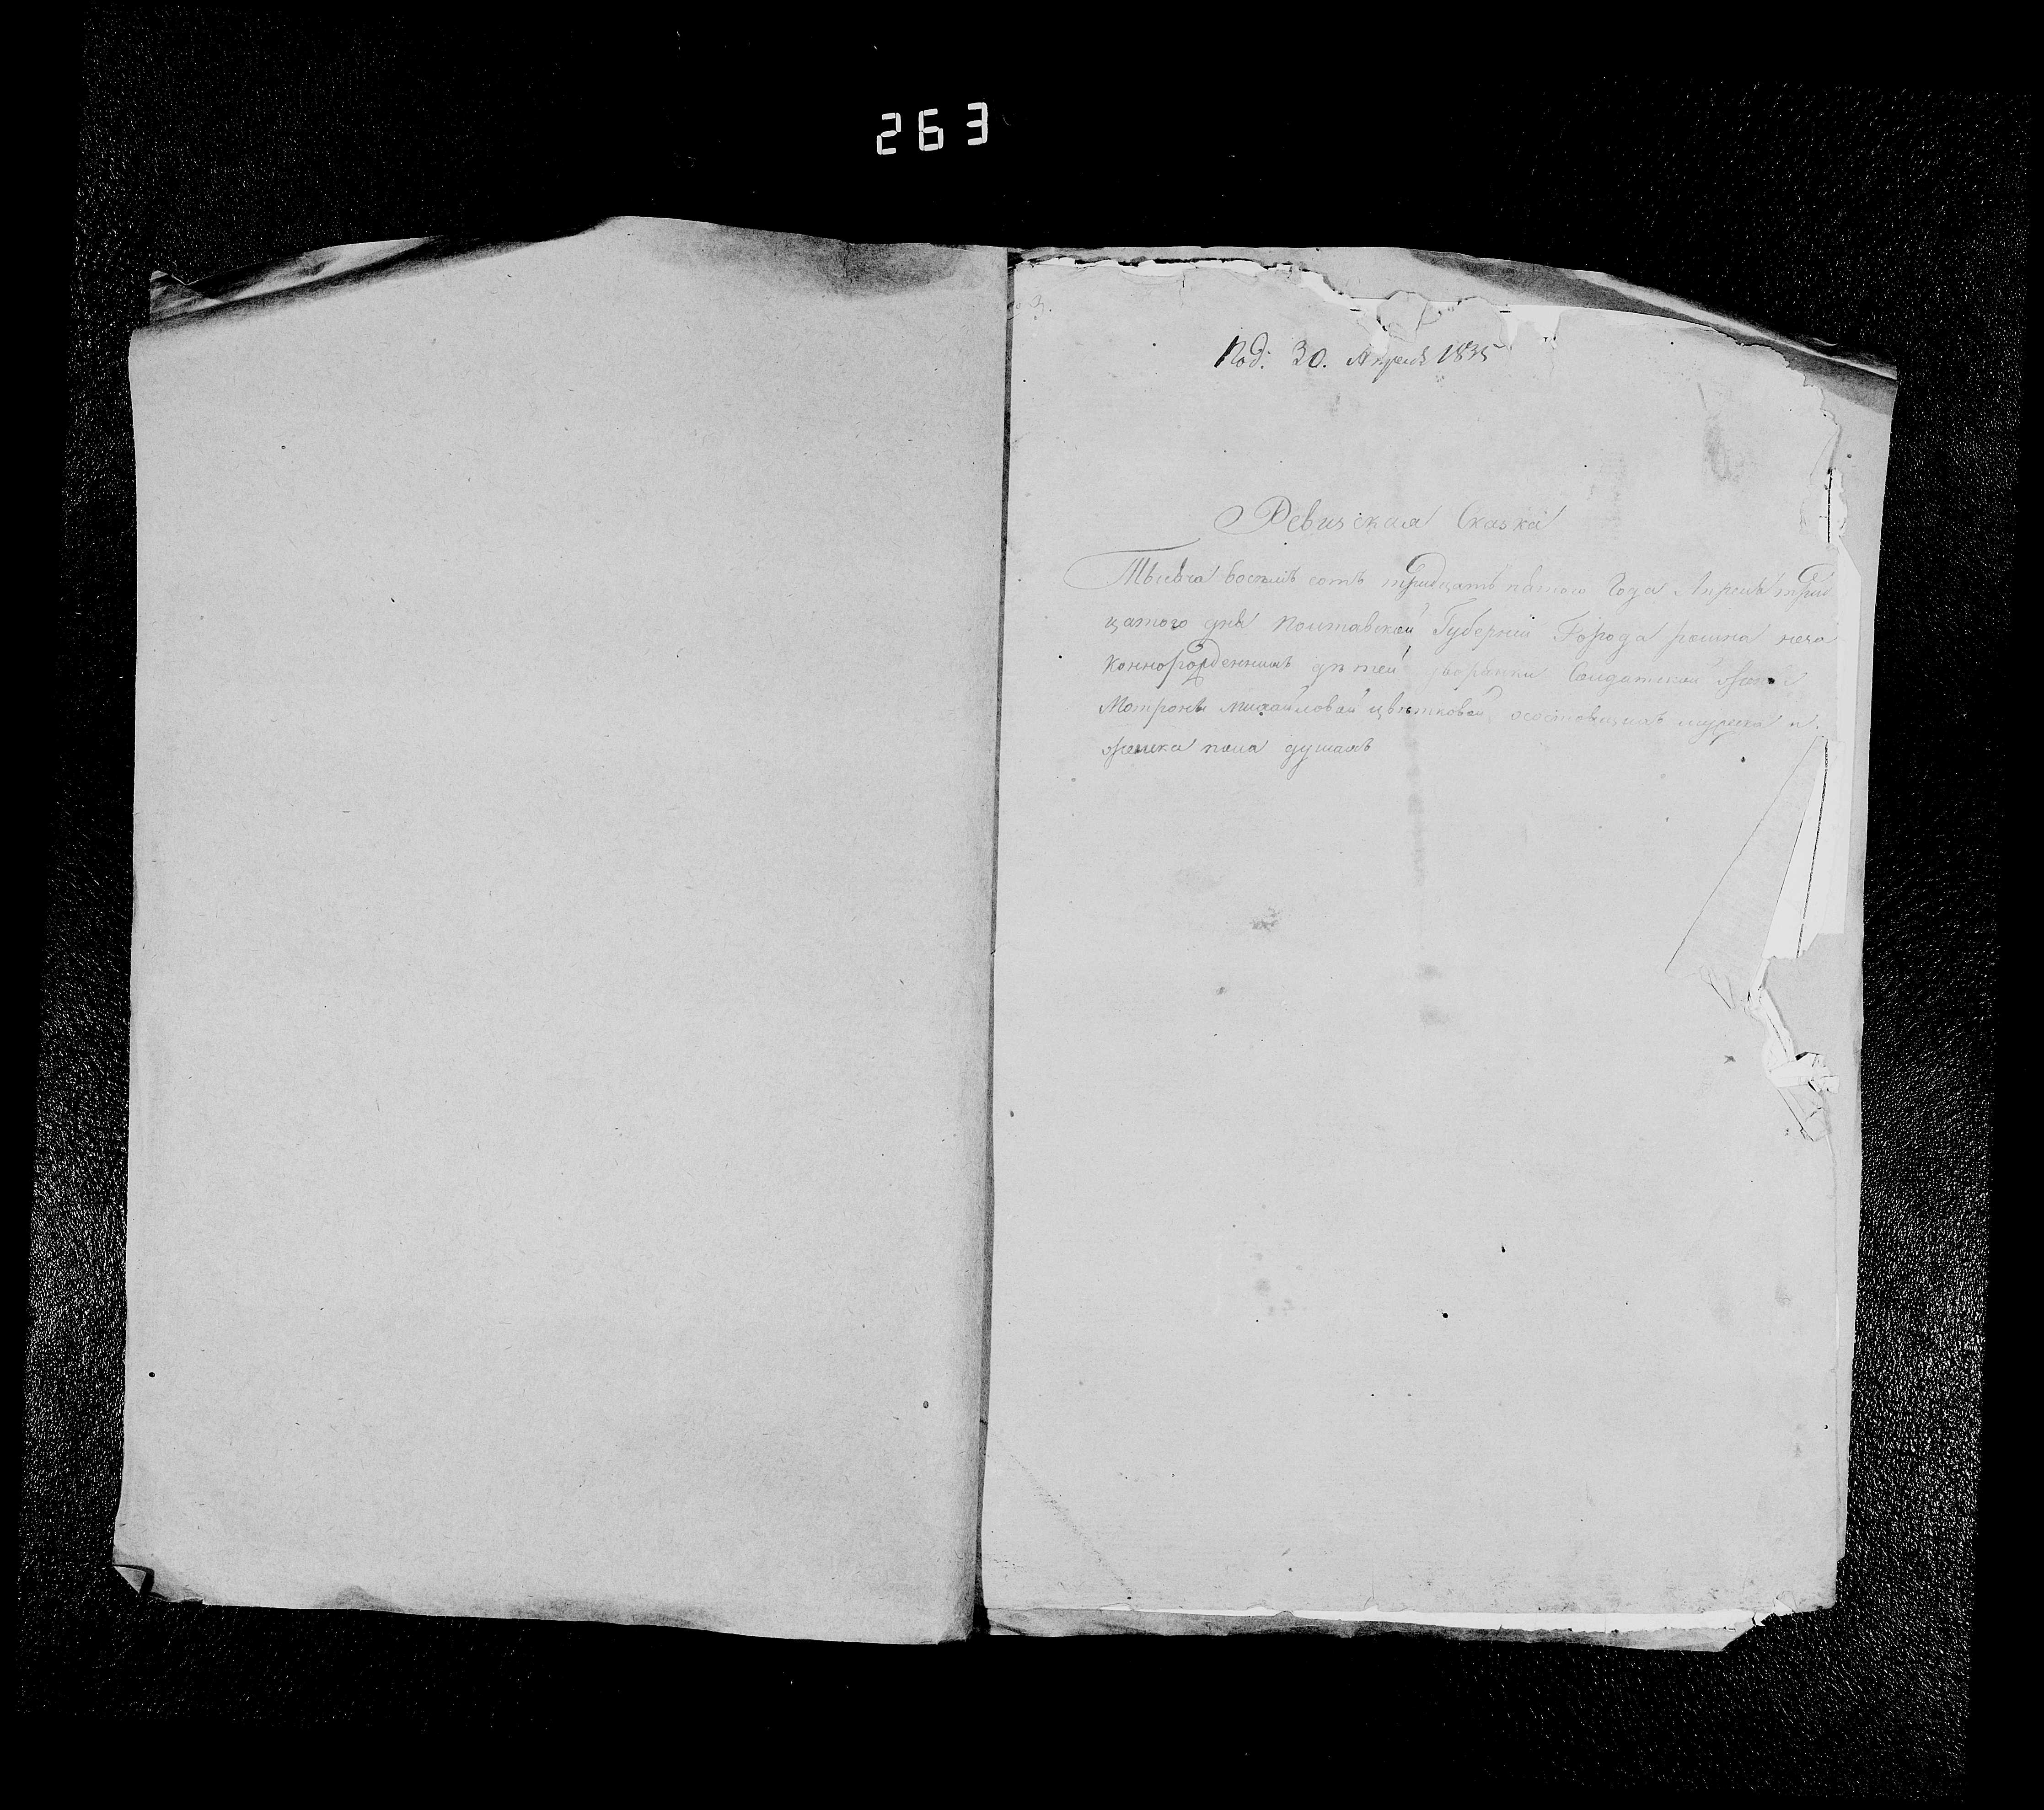 263
3.
Под: 30. Апреля 1835
Ревизская Сказка
Тысяча восемъ сотъ тридцать пятого Года Апреля трид
цатого дня Полтавской Губерніи Города ромна неза
коннорожденнимъ дѣтей дворянки Солдатской жены
Мотроны михайловой цвѣтковой, осостоящихъ мужеска и
женска пола душахъ